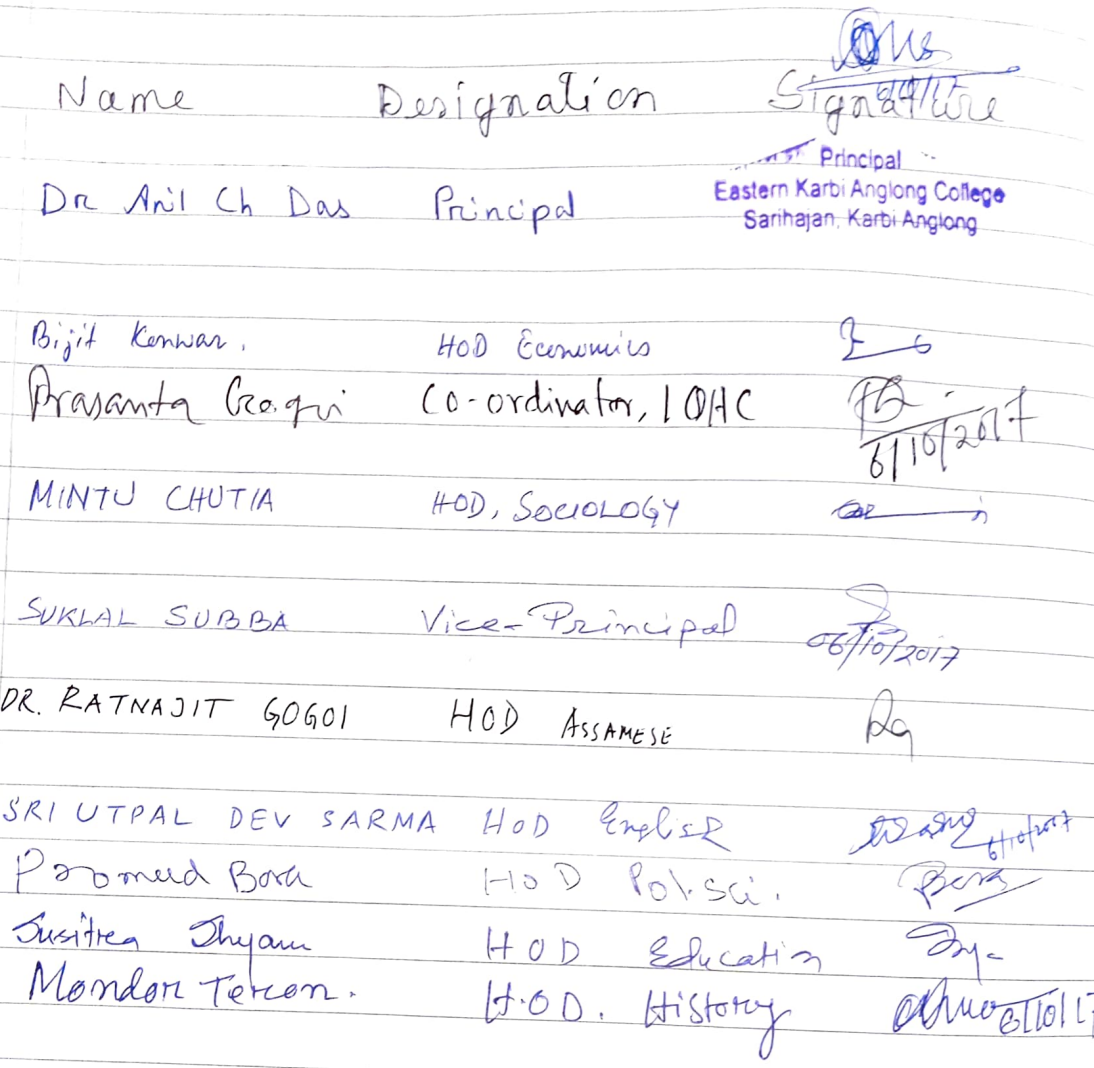 Name Designation Signature
Principal
Eastern Karbi Anglong College
Sarihajan, Karbi Anglong
Dr Anil Ch Das Principal
Bijit Konwar. HOD Economics
Prasanta Gogoi Co-ordinator, IQAC
6/10/2017
MINTU CHUTIA HOD, SOCIOLOGY
SUKLAL SUBBA Vice-Principal
06/10/2017
DR. RATNAJIT GOGOI HOD ASSAMESE
SRI UTPAL DEV SARMA HOD English 6/10/2017
Promud Bora HOD Pol. Sci. Bora
Shyam HOD Education
Mondor Teron. H.O.D. History 6/10/17